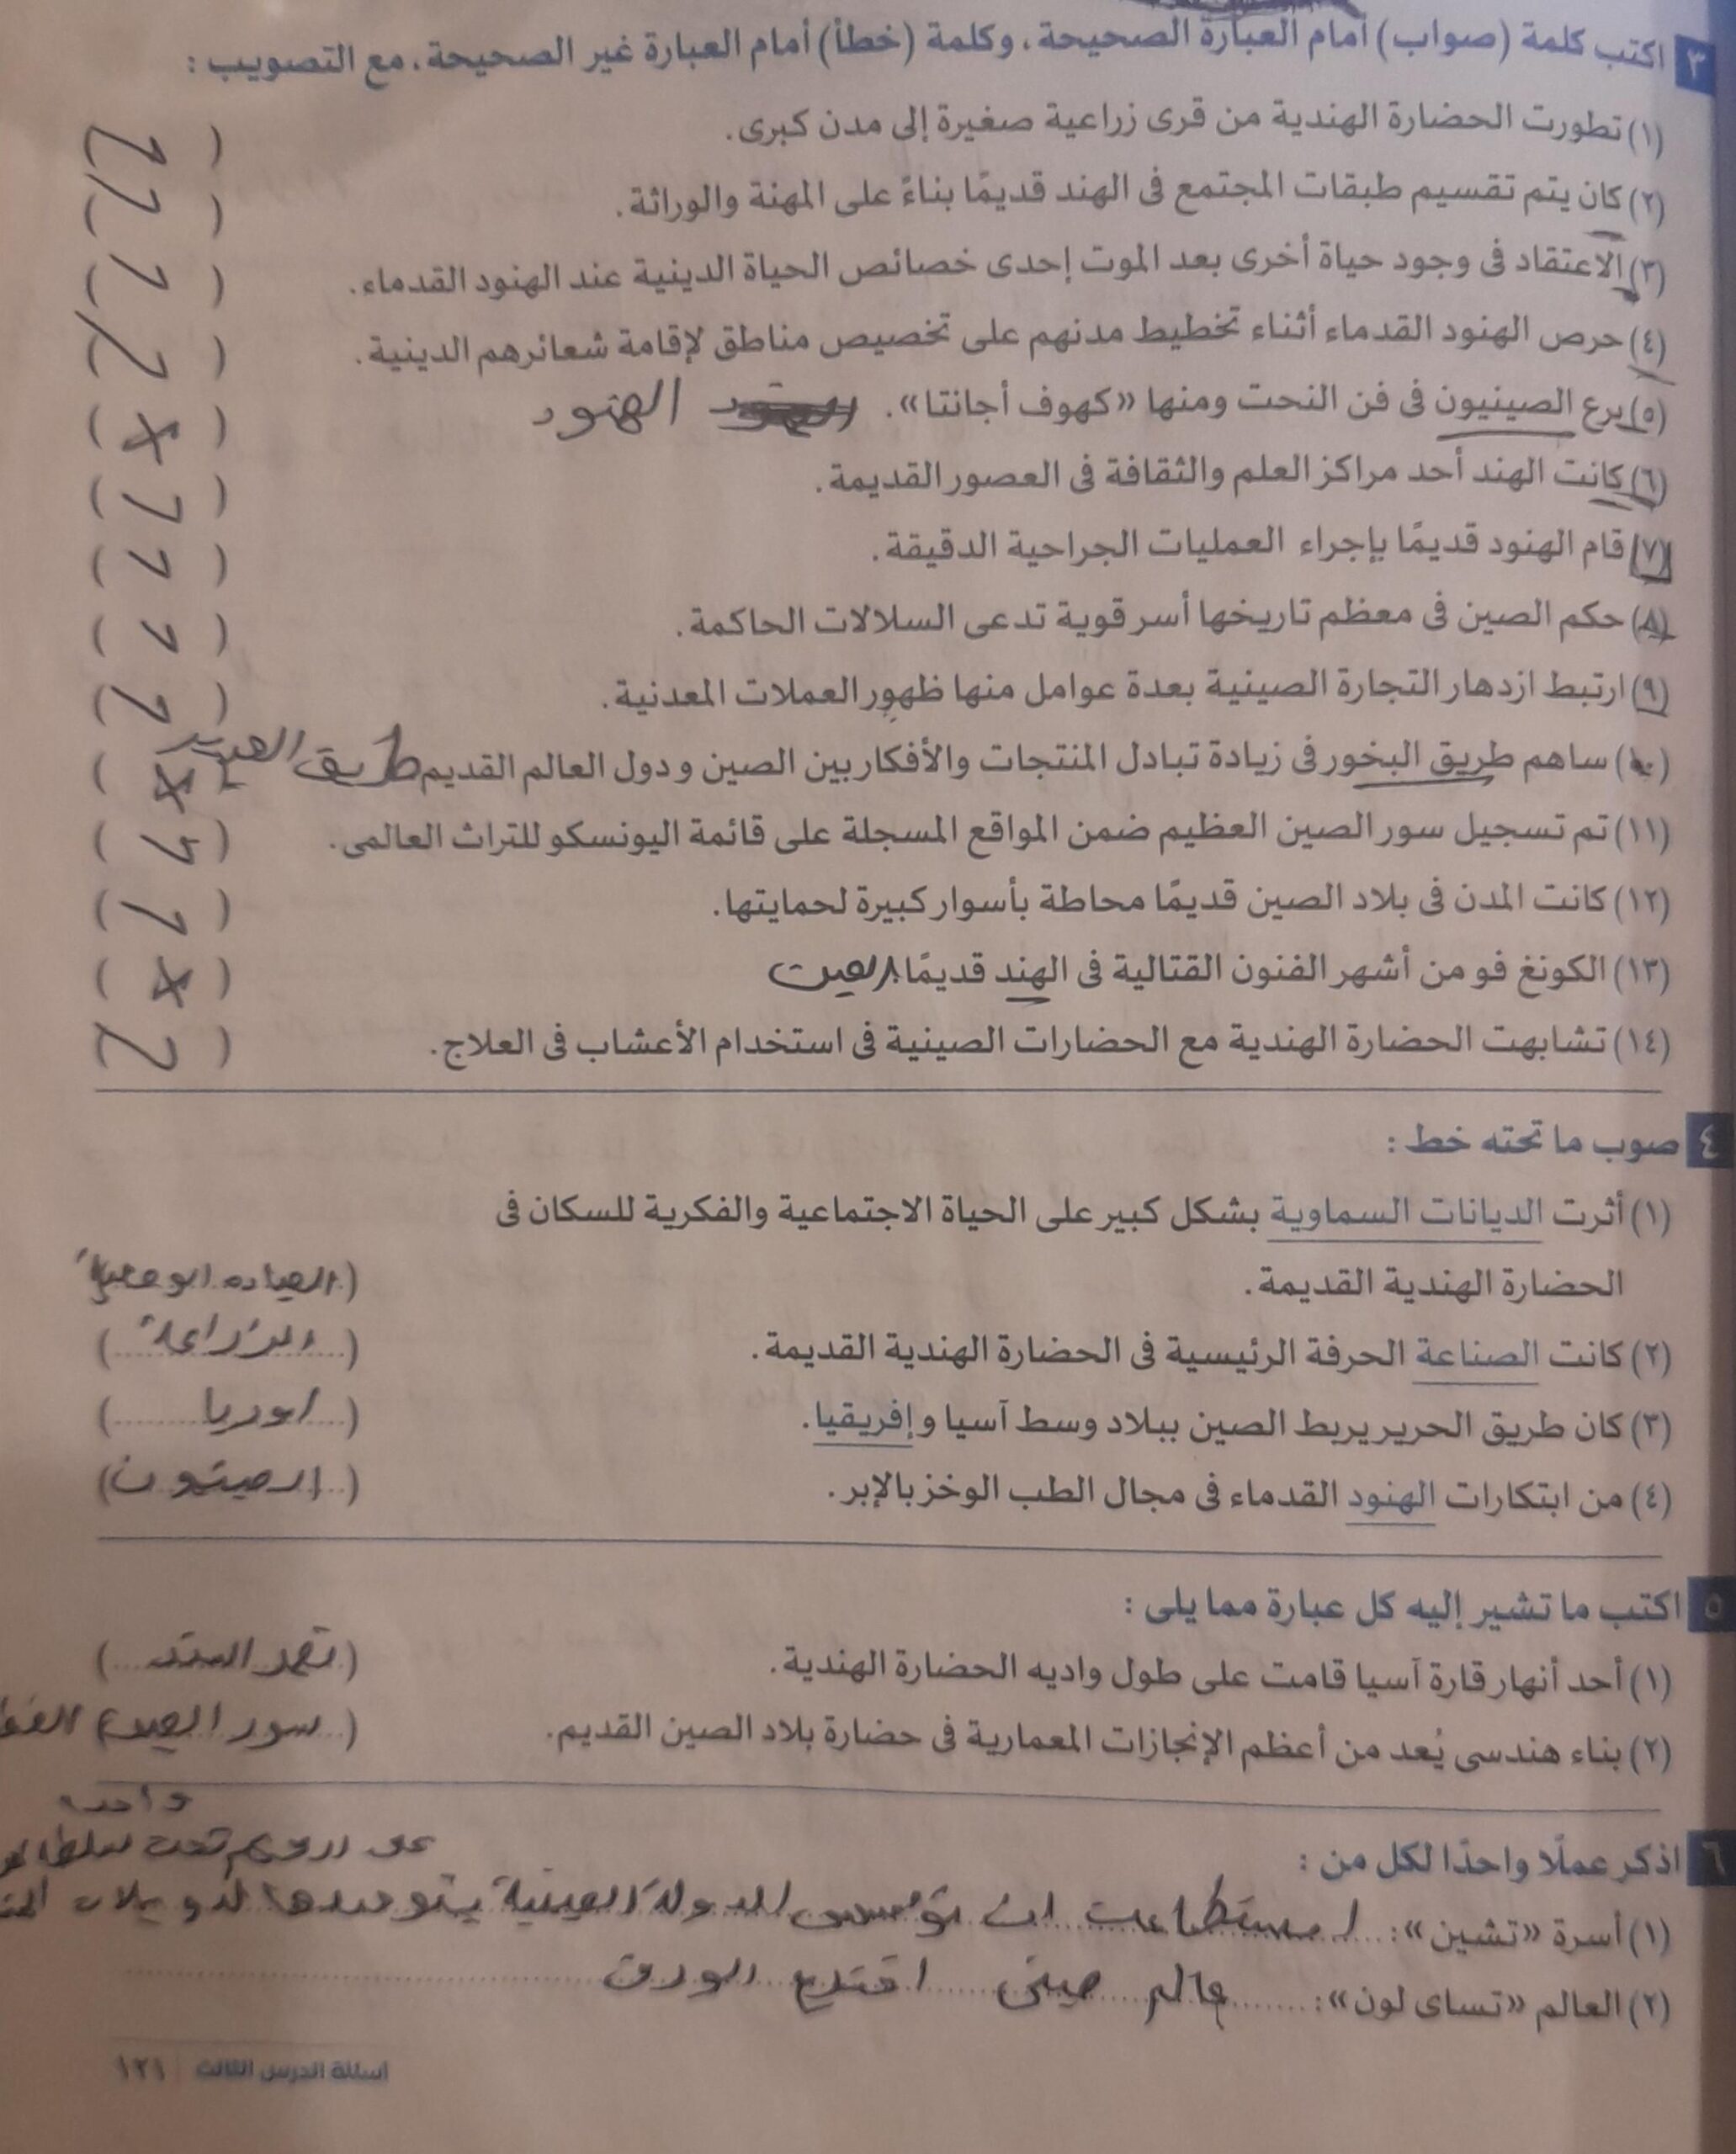 ٣ اكتب كلمة (صواب) أمام العبارة الصحيحة، وكلمة (خطأ) أمام العبارة غير الصحيحة، مع التصويب :
(١) تطورت الحضارة الهندية من قرى زراعية صغيرة إلى مدن كبرى. ( )
(٢) كان يتم تقسيم طبقات المجتمع فى الهند قديمًا بناءً على المهنة والوراثة. ( )
(٣) الاعتقاد فى وجود حياة أخرى بعد الموت إحدى خصائص الحياة الدينية عند الهنود القدماء. ( )
(٤) حرص الهنود القدماء أثناء تخطيط مدنهم على تخصيص مناطق لإقامة شعائرهم الدينية. ( )
(٥) برع الصينيون فى فن النحت ومنها «كهوف أجانتا». الهنود (×)
(٦) كانت الهند أحد مراكز العلم والثقافة فى العصور القديمة. ( )
(٧) قام الهنود قديمًا بإجراء العمليات الجراحية الدقيقة. ( )
(٨) حكم الصين فى معظم تاريخها أسر قوية تدعى السلالات الحاكمة. ( )
(٩) ارتبط ازدهار التجارة الصينية بعدة عوامل منها ظهور العملات المعدنية. ( )
(١٠) ساهم طريق البخور فى زيادة تبادل المنتجات والأفكار بين الصين ودول العالم القديم طريق الحرير (×)
(١١) تم تسجيل سور الصين العظيم ضمن المواقع المسجلة على قائمة اليونسكو للتراث العالمى. ( )
(١٢) كانت المدن فى بلاد الصين قديمًا محاطة بأسوار كبيرة لحمايتها. ( )
(١٣) الكونغ فو من أشهر الفنون القتالية فى الهند قديمًا. الصين (×)
(١٤) تشابهت الحضارة الهندية مع الحضارات الصينية فى استخدام الأعشاب فى العلاج. ( )
٤ صوب ما تحته خط :
(١) أثرت الديانات السماوية بشكل كبير على الحياة الاجتماعية والفكرية للسكان فى
الحضارة الهندية القديمة.
(٢) كانت الصناعة الحرفة الرئيسية فى الحضارة الهندية القديمة. (الزراعة)
(٣) كان طريق الحرير يربط الصين ببلاد وسط آسيا وإفريقيا. (اوربا)
(٤) من ابتكارات الهنود القدماء فى مجال الطب الوخز بالإبر. (الصينيون)
٥ اكتب ما تشير إليه كل عبارة مما يلى :
(١) أحد أنهار قارة آسيا قامت على طول واديه الحضارة الهندية. (نهر السند)
(٢) بناء هندسى يُعد من أعظم الإنجازات المعمارية فى حضارة بلاد الصين القديم. (سور الصين
٦ اذكر عملًا واحدًا لكل من :
واحدة
تحت
(١) أسرة «تشين»: استطاعت ان تؤسس الدولة الصينية بتوحيدها لدويلات
(٢) العالم «تساى لون»: عالم صينى اخترع الورق
أسئلة الدرس الثالث ١٢١